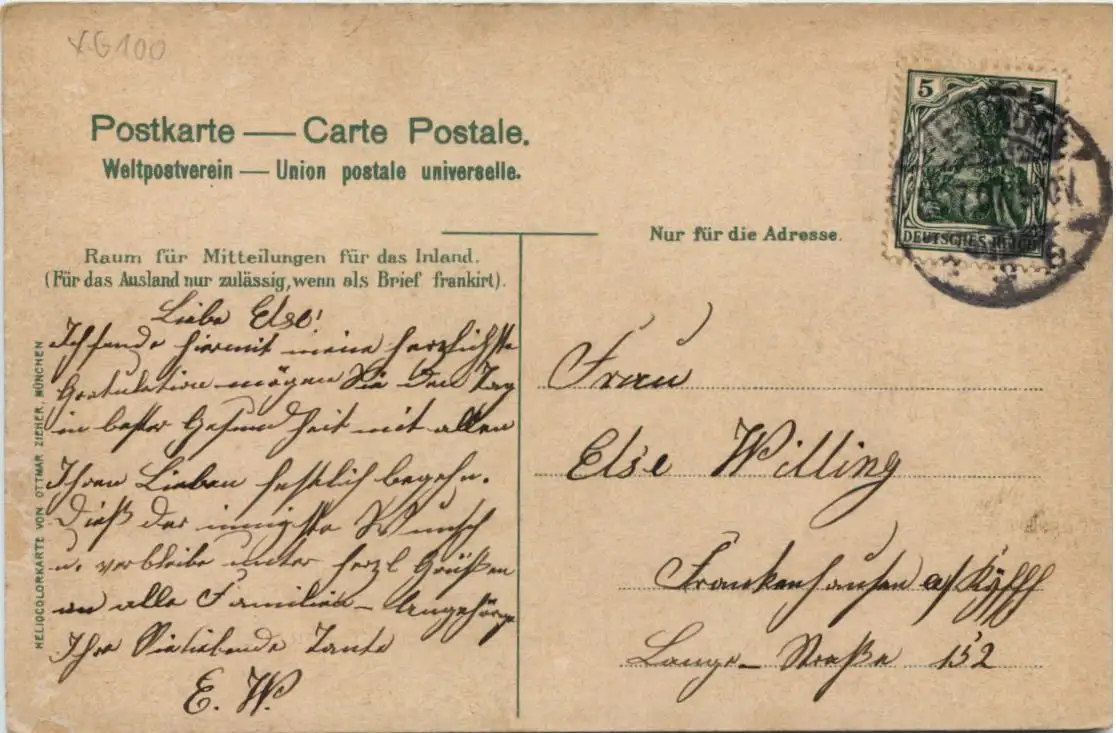 XG100
Postkarte — Carte Postale.
Weltpostverein — Union postale universelle.
5 5
DEUTSCHES REICH
Nur für die Adresse.
Raum für Mitteilungen für das Inland.
(Für das Ausland nur zulässig, wenn als Brief frankirt).
Liebe Else!
Ich sende hiermit meine herzlichste
Gratulation mögen Sie den Tag
in bester Gesundheit mit allen
Ihren Lieben festlich begehn.
Dieß der innigste Wunsch
u. verbleibe unter herzl Grüßen
an alle Familien-Angehörge
Ihre Sie liebende Tante
E. W.
Frau
Else Willing
Frankenhausen a/Kyffh
Lange-Straße 152
HELIOCOLORKARTE VON OTTMAR ZIEHER, MÜNCHEN